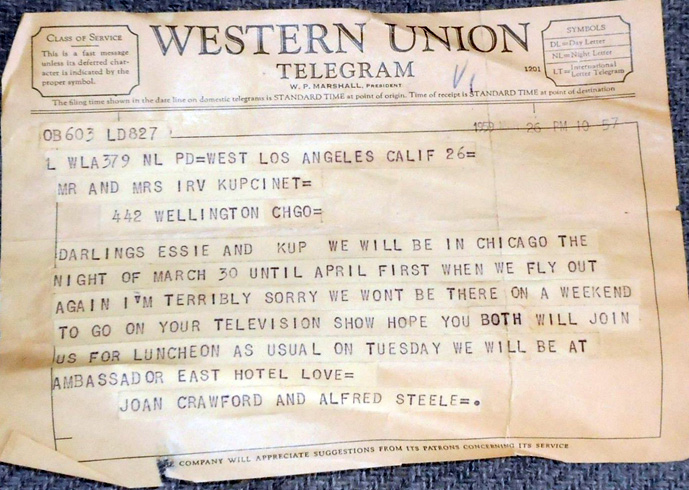 CLASS OF SERVICE
This is a fast message
unless its deferred char-
acter is indicated by the
proper symbol.
WESTERN UNION
TELEGRAM
W. P. MARSHALL, PRESIDENT
1201
SYMBOLS
DL=Day Letter
NL=Night Letter
LT=International
Letter Telegram
The filing time shown in the date line on domestic telegrams is STANDARD TIME at point of origin. Time of receipt is STANDARD TIME at point of destination
OB603 LD827
26 PM 10 57
L WLA379 NL PD=WEST LOS ANGELES CALIF 26=
MR AND MRS IRV KUPCINET=
442 WELLINGTON CHGO=
DARLINGS ESSIE AND KUP WE WILL BE IN CHICAGO THE
NIGHT OF MARCH 30 UNTIL APRIL FIRST WHEN WE FLY OUT
AGAIN I'M TERRIBLY SORRY WE WONT BE THERE ON A WEEKEND
TO GO ON YOUR TELEVISION SHOW HOPE YOU BOTH WILL JOIN
US FOR LUNCHEON AS USUAL ON TUESDAY WE WILL BE AT
AMBASSADOR EAST HOTEL LOVE=
JOAN CRAWFORD AND ALFRED STEELE=.
COMPANY WILL APPRECIATE SUGGESTIONS FROM ITS PATRONS CONCERNING ITS SERVICE